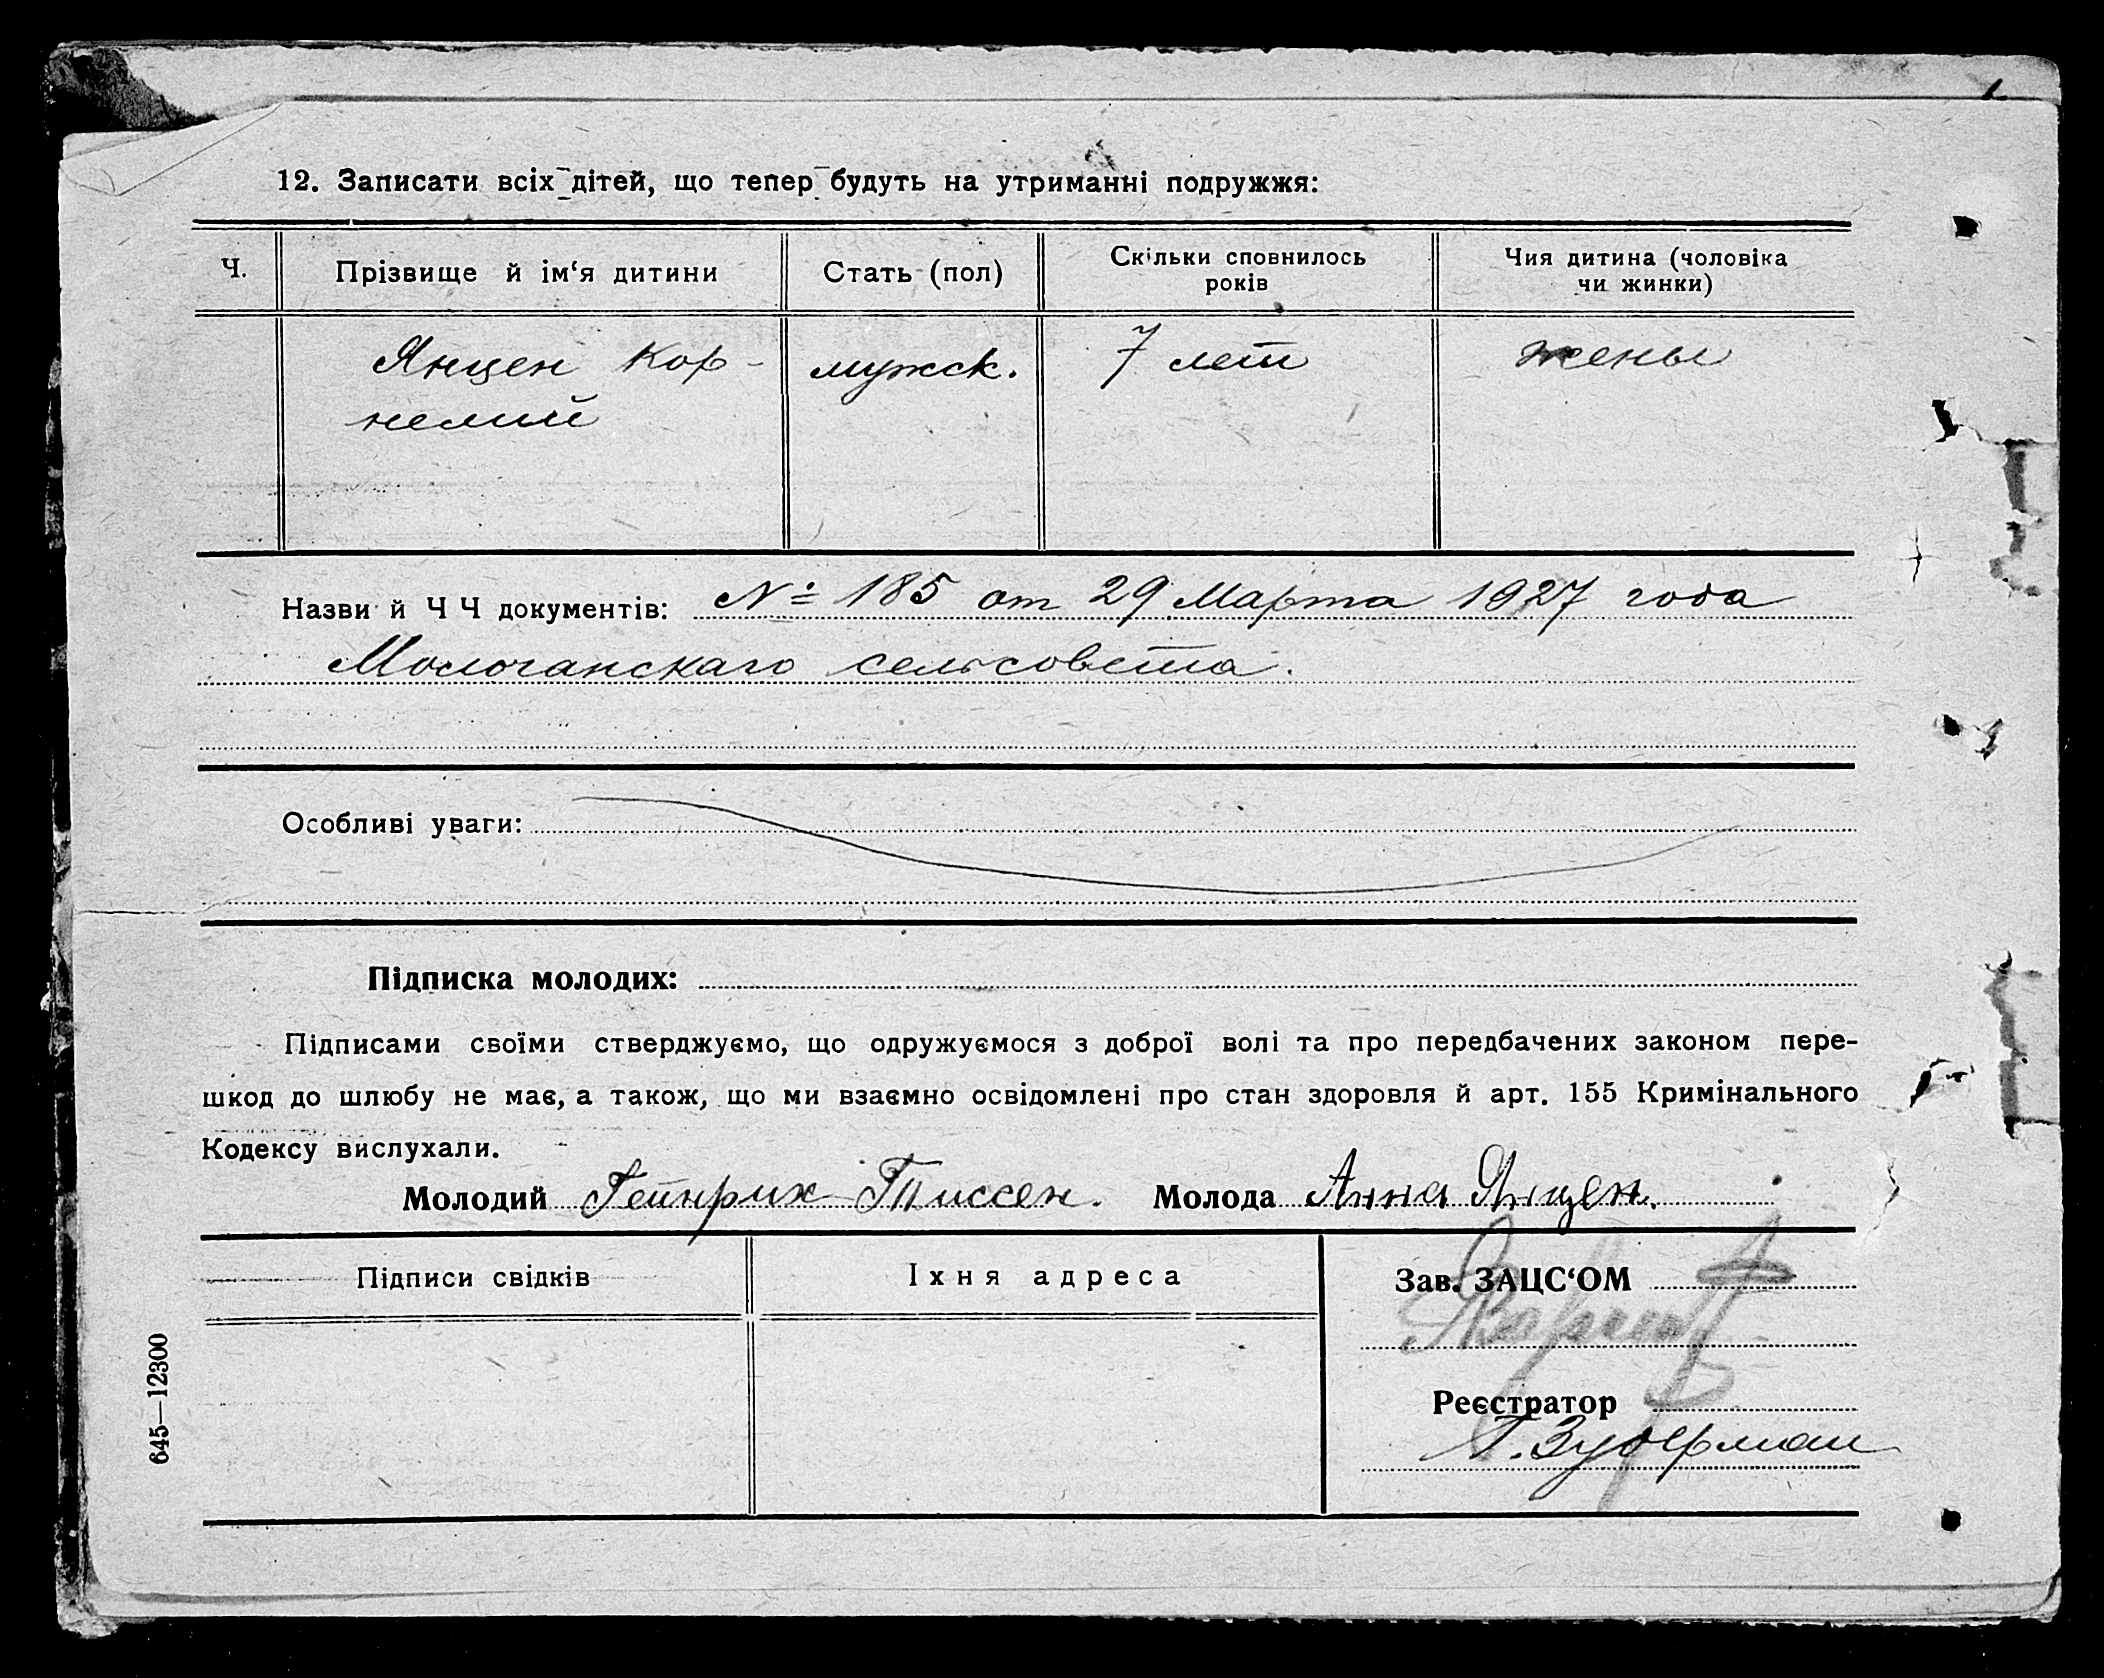 12. Записати всіх дітей, що тепер будуть на утриманні подружжя:
Ч. Прізвище й ім‘я дитини Стать (пол) Скільки сповнилось років Чия дитина (чоловіка чи жинки)
Янцен Кор- мужск. 7 лет жены
нелий
Назви й Ч Ч документів: № 185 от 29 Марта 1927 года
Молочанскаго сельсовета.
Особливі уваги:
Підписка молодих:
Підписами своїми стверджуємо, що одружуємося з доброї волі та про передбачених законом пере-
шкод до шлюбу не має, а також, що ми взаємно освідомлені про стан здоровля й арт. 155 Кримінального
Кодексу вислухали.
Молодий Гейнрих Тиссен. Молода Анна Янцен.
Підписи свідків Їхня адреса Зав. ЗАЦС‘ОМ
Реєстратор
645—12300